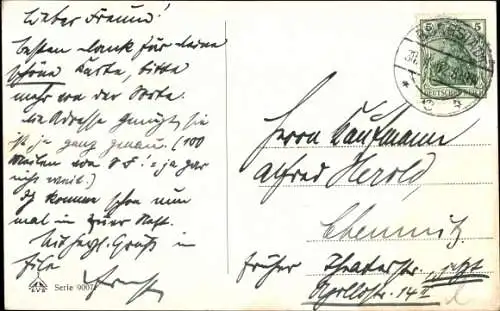 Lieber Freund!
besten Dank für deine
schöne Karte, bitte
mehr von der Sorte.
die Adresse genügt, sie
ist ja ganz genau. (100
Meilen von S F. = ja gar
nicht weit.)
Ich komme schon nun
mal in
Mit herzl. Gruß in
Eile
Serie 9007
DEUTSCHES REICH
5
Herrn Kaufmann
Alfred Herold,
Chemnitz
früher Theaterstr., jetzt
Apollostr. 14